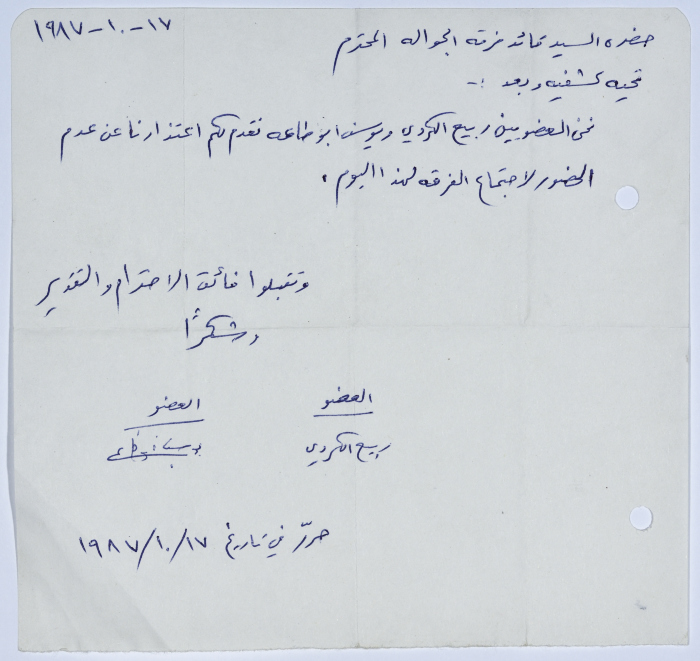 ١٧-١٠-١٩٨٧
حضره السيد قائد فرقه الجواله المحترم
تحيه كشفيه وبعد :-
نحن العضويين ربيع الكردي ويوسف ابو طاعه نقدم لكم اعتذارنا عن عدم
الحضور لاجتماع الفرقه لهذا اليوم .
وتقبلوا فائق الاحترام والتقدير
وشكراً
العضو العضو
ربيع الكردي
حرّر في تاريخ ١٩٨٧/١٠/١٧